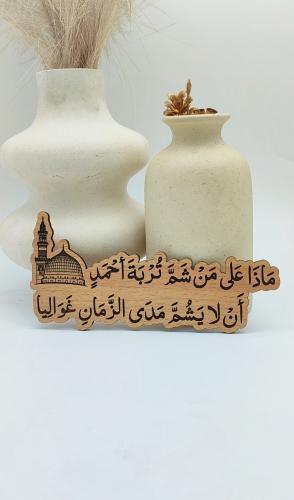 مَاذَا عَلَى مَنْ شَمَّ تُرْبَةَ أَحْمَدٍ
أَنْ لا يَشُمَّ مَدَى الزَّمَانِ غَوَالِيا